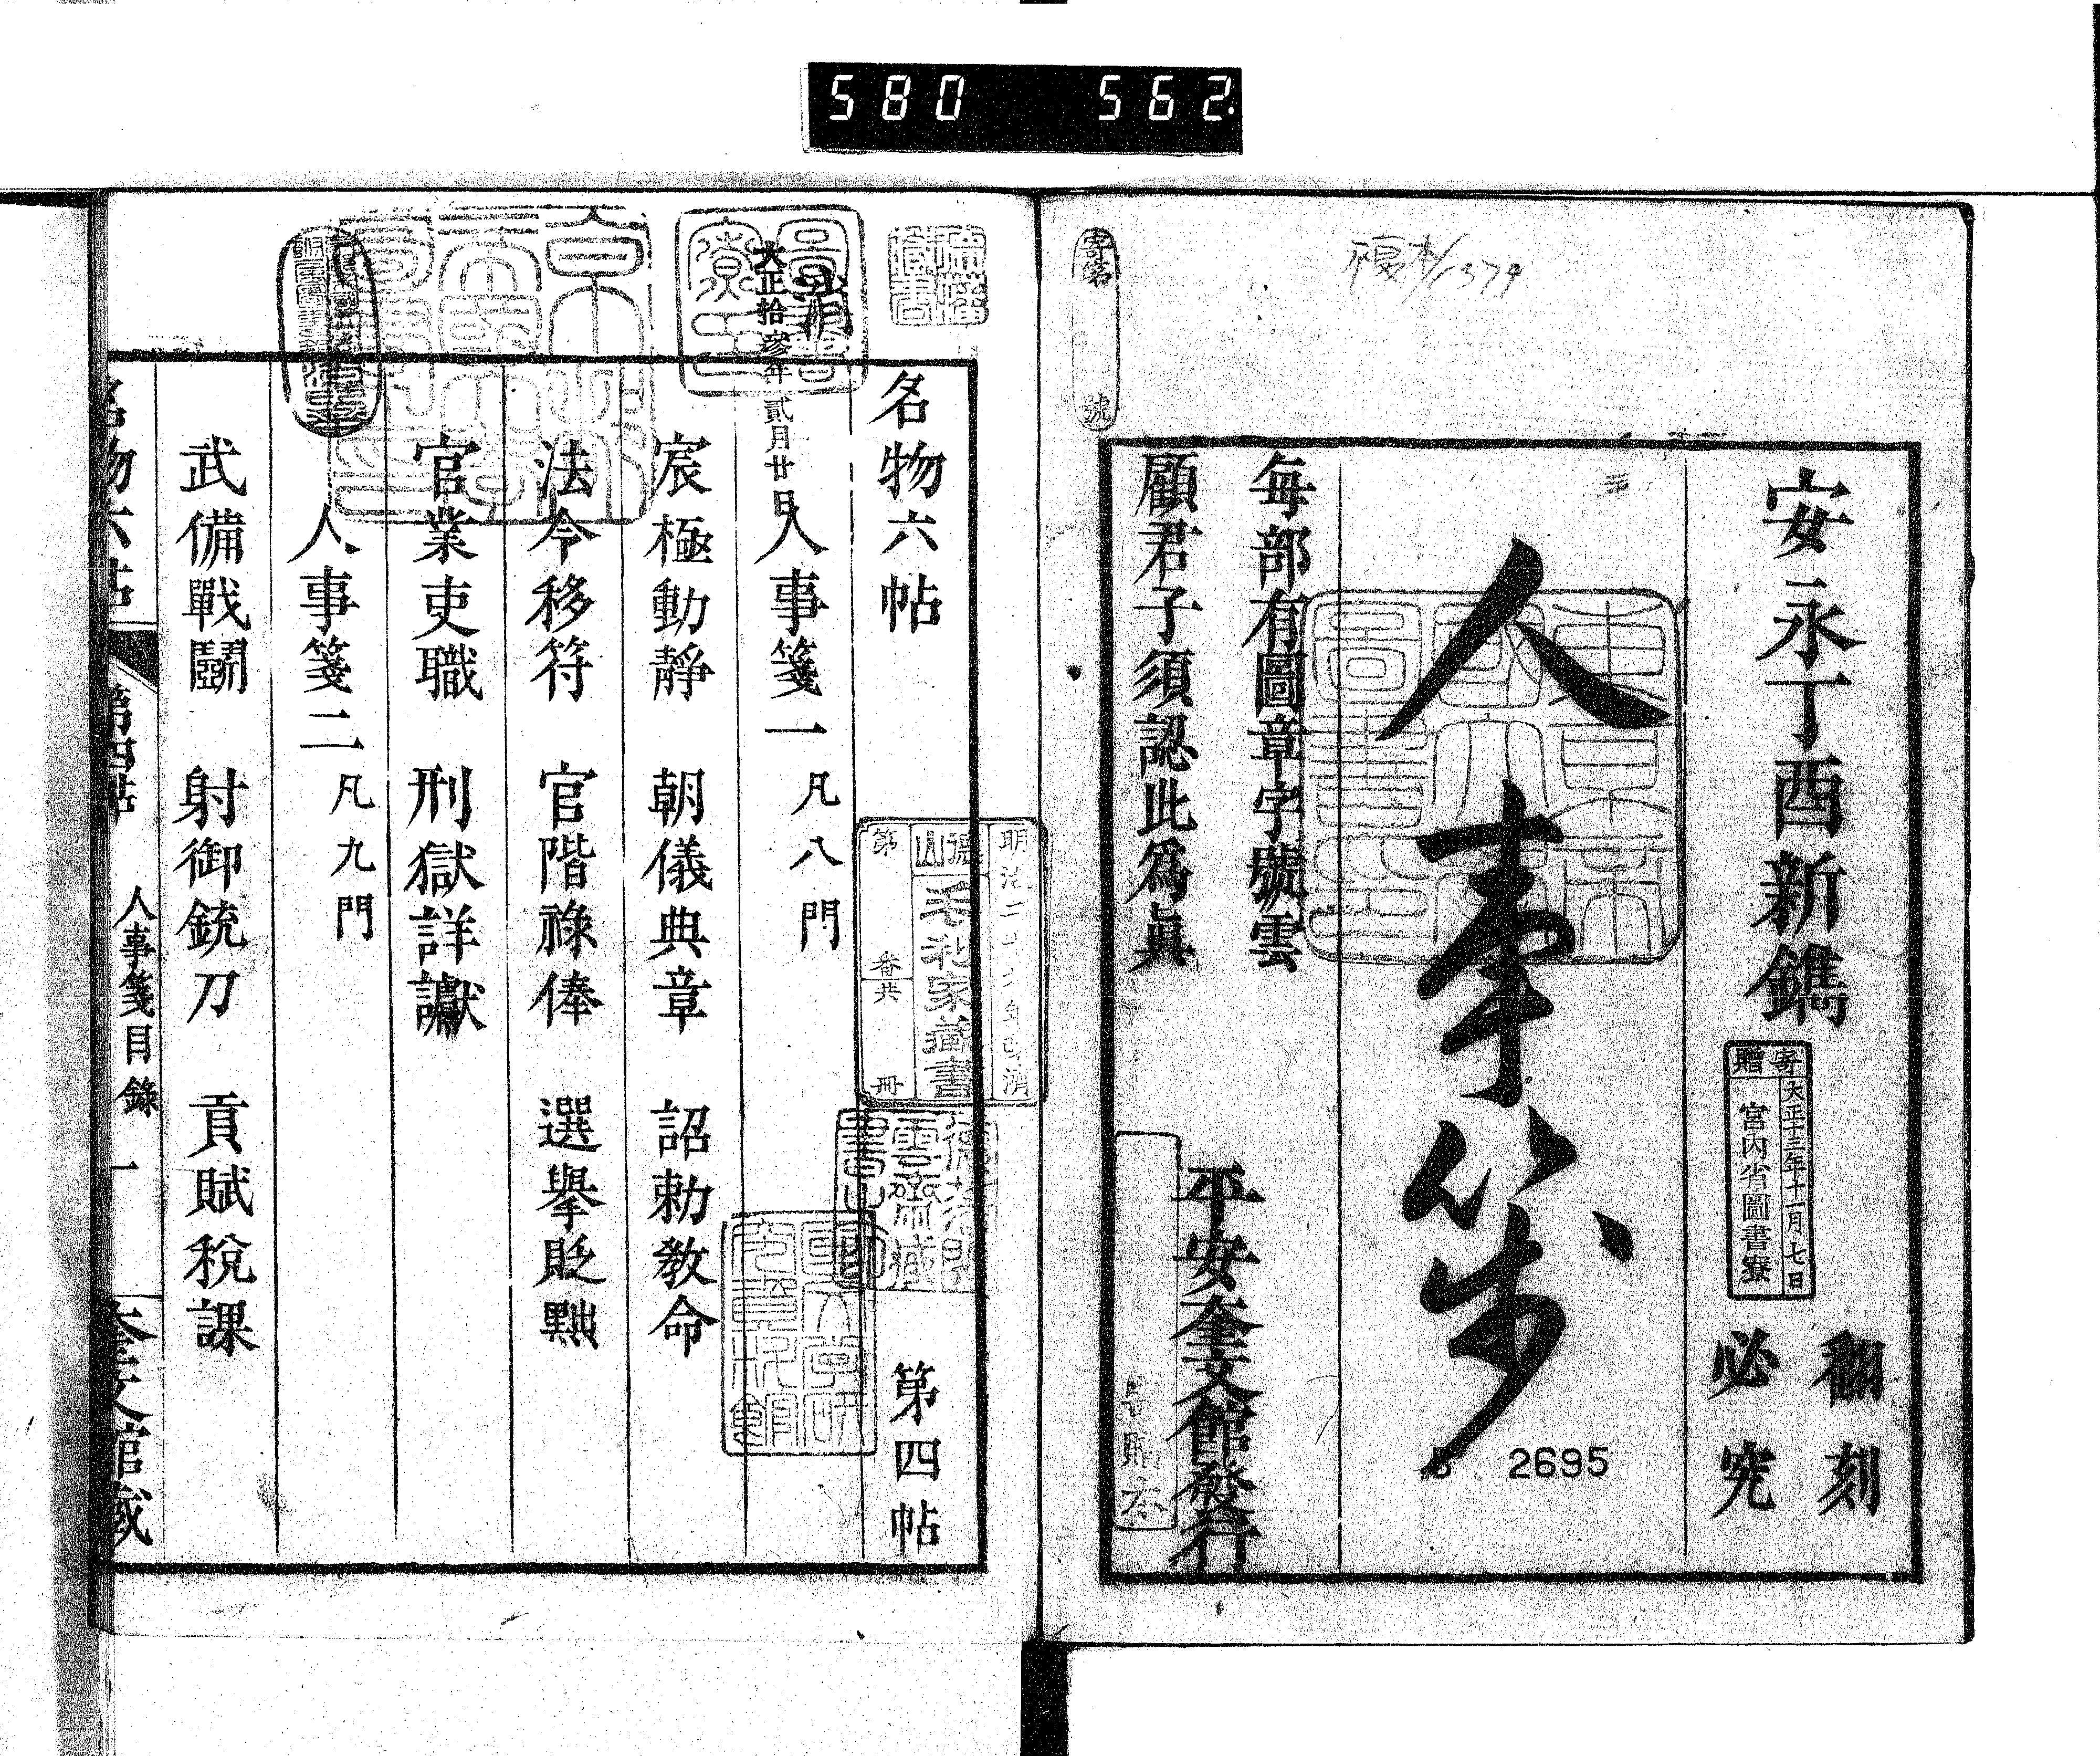 580 562
複本/1379
寄第 號
安永丁酉新鐫
翻刻
必究
寄贈
大正十三年十一月七日
宮内省圖書寮
人事箋
2695
每部有圖章字號雲
顧君子須認此爲眞
平安奎文館發行
寄贈本
名物六帖 第四帖
明治二十九年改濟
德山
毛利家藏書
第 番共 冊
大正拾參年貳月廿日
人事箋一 凡八門
宸極動靜 朝儀典章 詔勅教命
法令移符 官階祿俸 選擧貶黜
官業吏職 刑獄詳讞
人事箋二 凡九門
武備戰鬭 射御銃刀 貢賦稅課
名物六帖 第四帖 人事箋目錄 一 奎文館藏